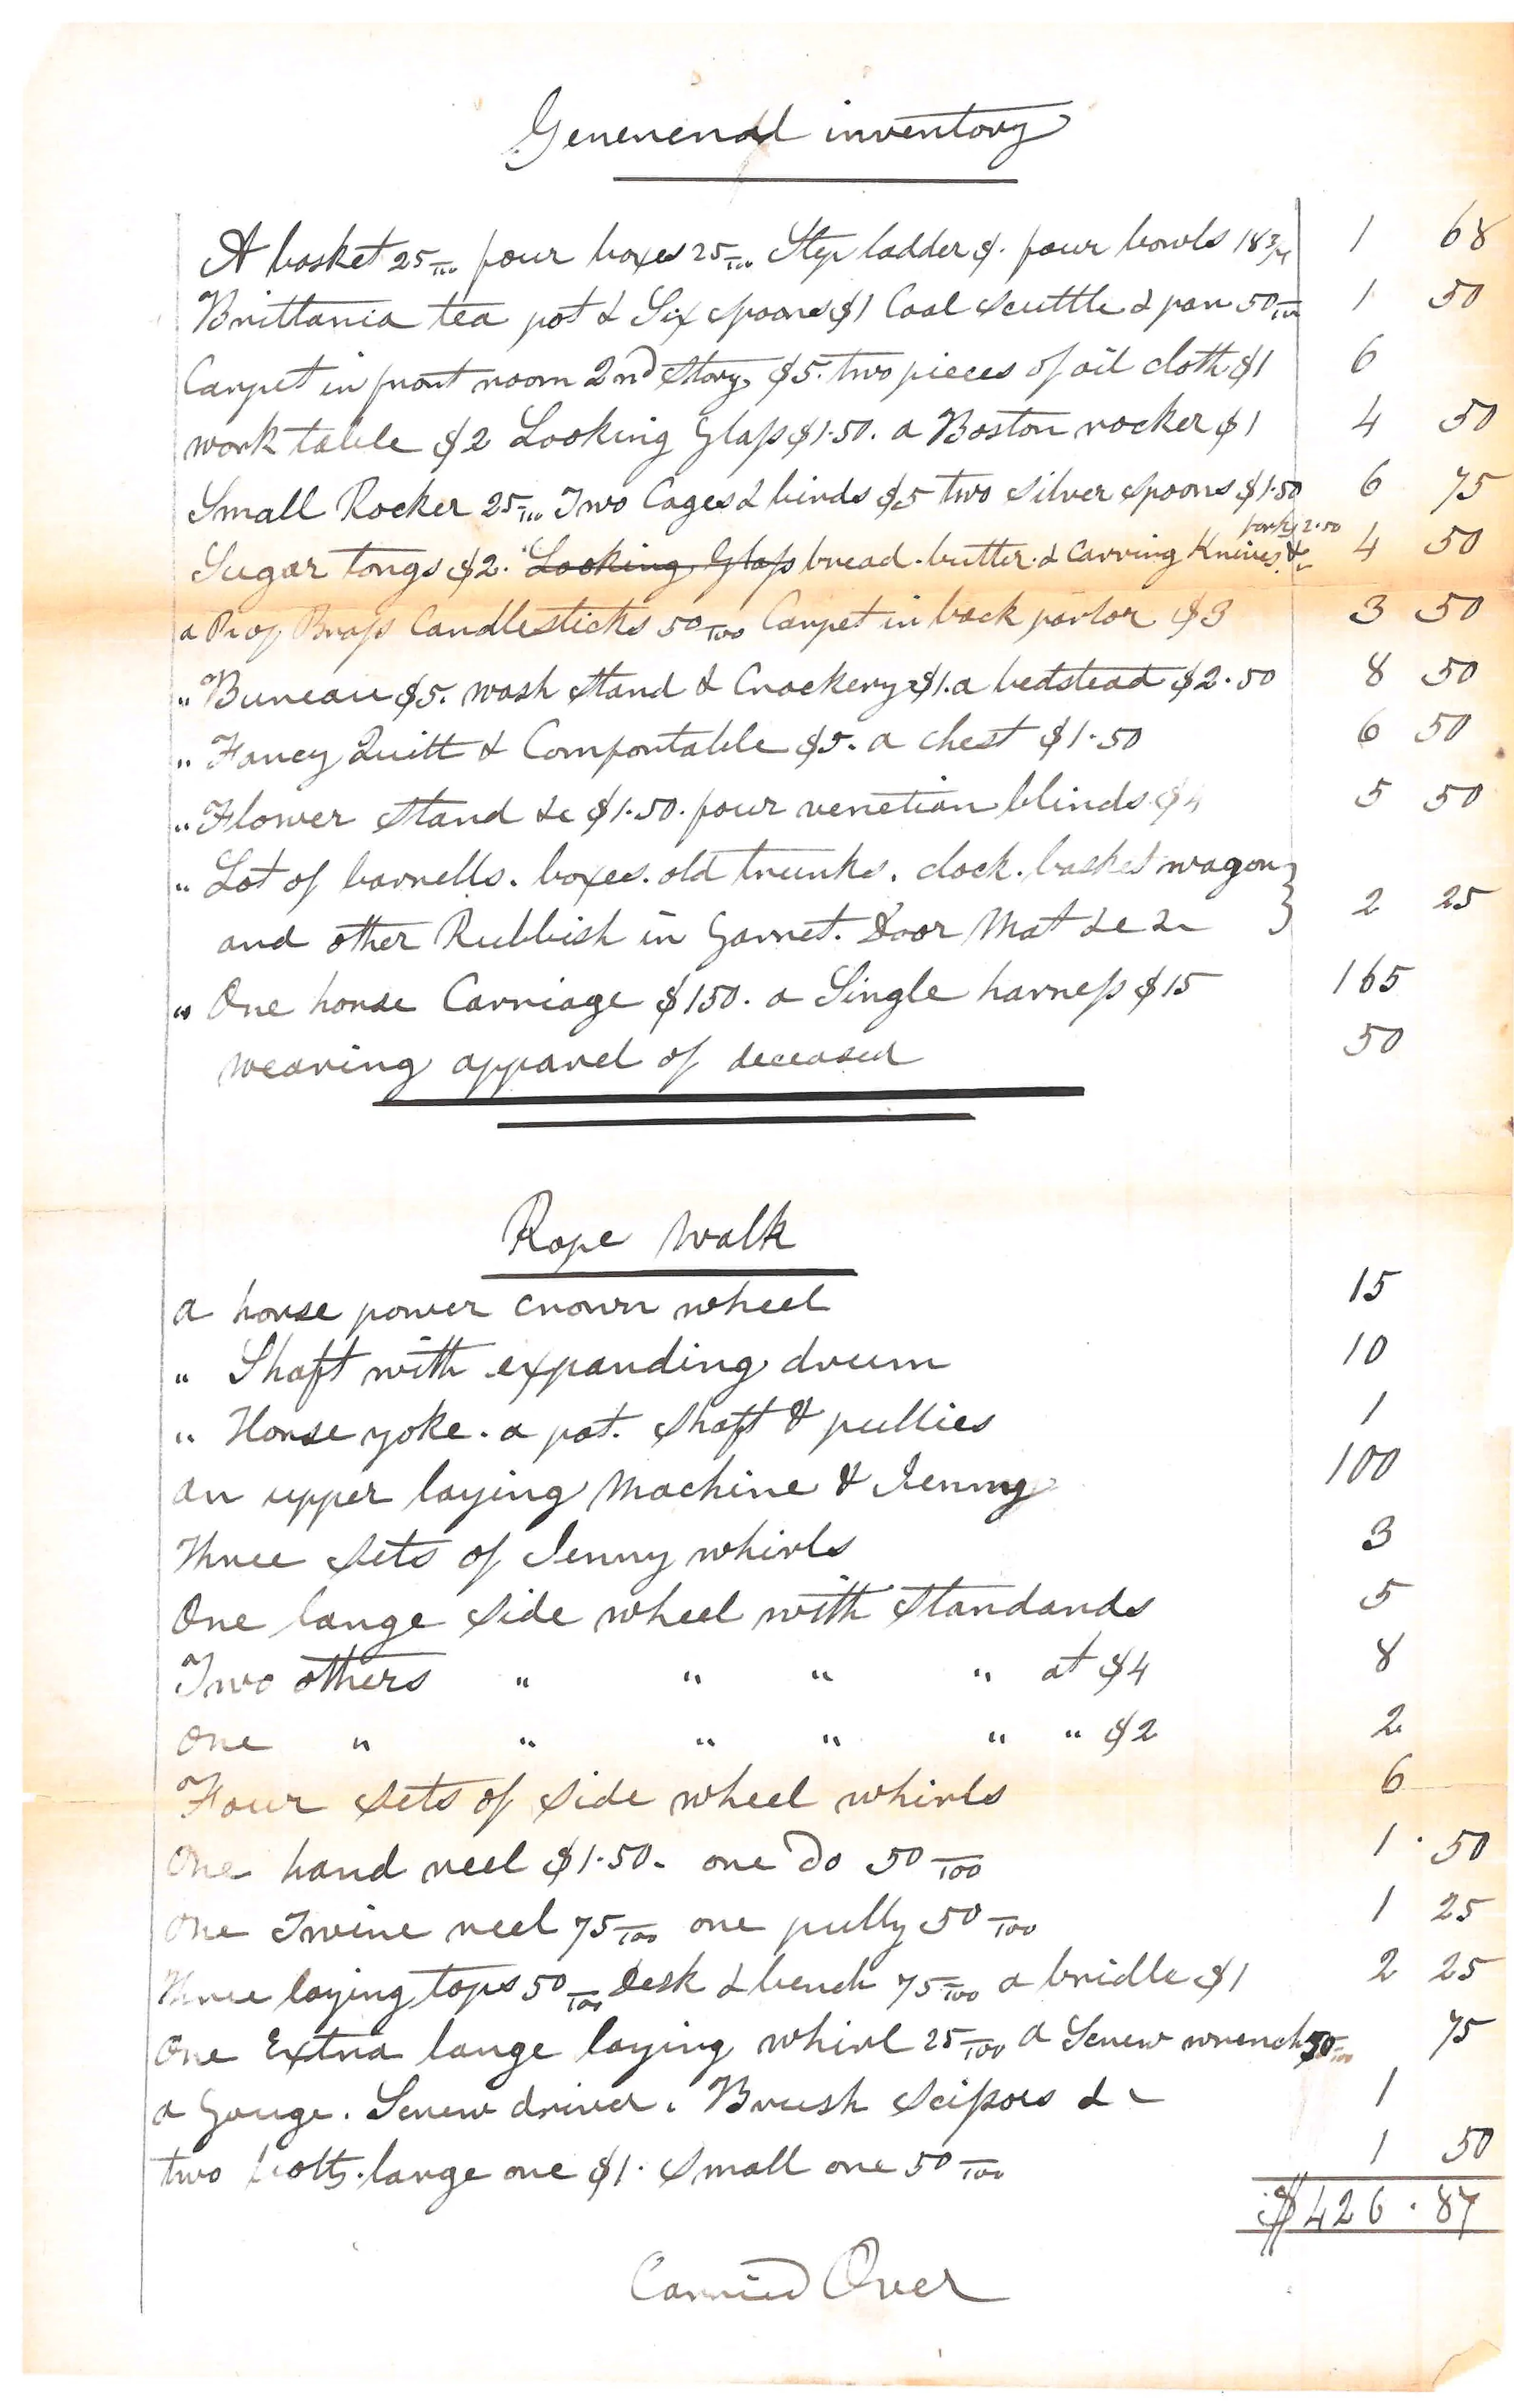 Genenenal inventory
A basket 25/100 four boxes 25/100 Step ladder $. four bowls 18 3/4 1 68
Brittania tea pot & Six spoons $1 Coal scuttle & pan 50/100 1 50
Carpet in front room 2nd story $5. two pieces of oil cloth $1 6
work table $2 Looking Glass $1.50. a Boston rocker $1 4 50
Small Rocker 25/100 Two Cages & birds $5 two silver spoons $1.50 6 75
forks 2.50
Sugar tongs $2. Looking Glass bread. butter. & Carving Knives & 4 50
a Pr of Brass Candlesticks 50/100 Carpet in back parlor $3 3 50
" Bureau $5. wash stand & Crockery $1. a bedstead $2.50 8 50
" Fancy Quilt & Comfortable $5. a chest $1.50 6 50
" Flower stand &c $1.50. four venetian blinds $4 5 50
" Lot of barrells. boxes. old trunks. clock. basket wagon
and other Rubbish in Garret. Door Mat &c &c 2 25
" One horse Carriage $150. a Single harness $15 165
wearing apparel of deceased 50
Rope Walk
a horse power crown wheel 15
" Shaft with expanding drum 10
" Horse yoke. a pat. shaft & pullies 1
an upper laying Machine & Jenny 100
Three sets of Jenny whirls 3
One large side wheel with standards 5
Two others " " " " at $4 8
One " " " " " " $2 2
Four sets of side wheel whirls 6
One hand reel $1.50. one do 50/100 1.50
One Twine reel 75/100 one pully 50/100 1 25
Three laying tops 50/100 Desk & bench 75/100 a bridle $1 2 25
One Extra large laying whirl 25/100 a Screw wrench 50/100 75
a Gouge. Screw driver. Brush Scissors &c 1
two large one $1. small one 50/100 1 50
$426.87
Carried Over